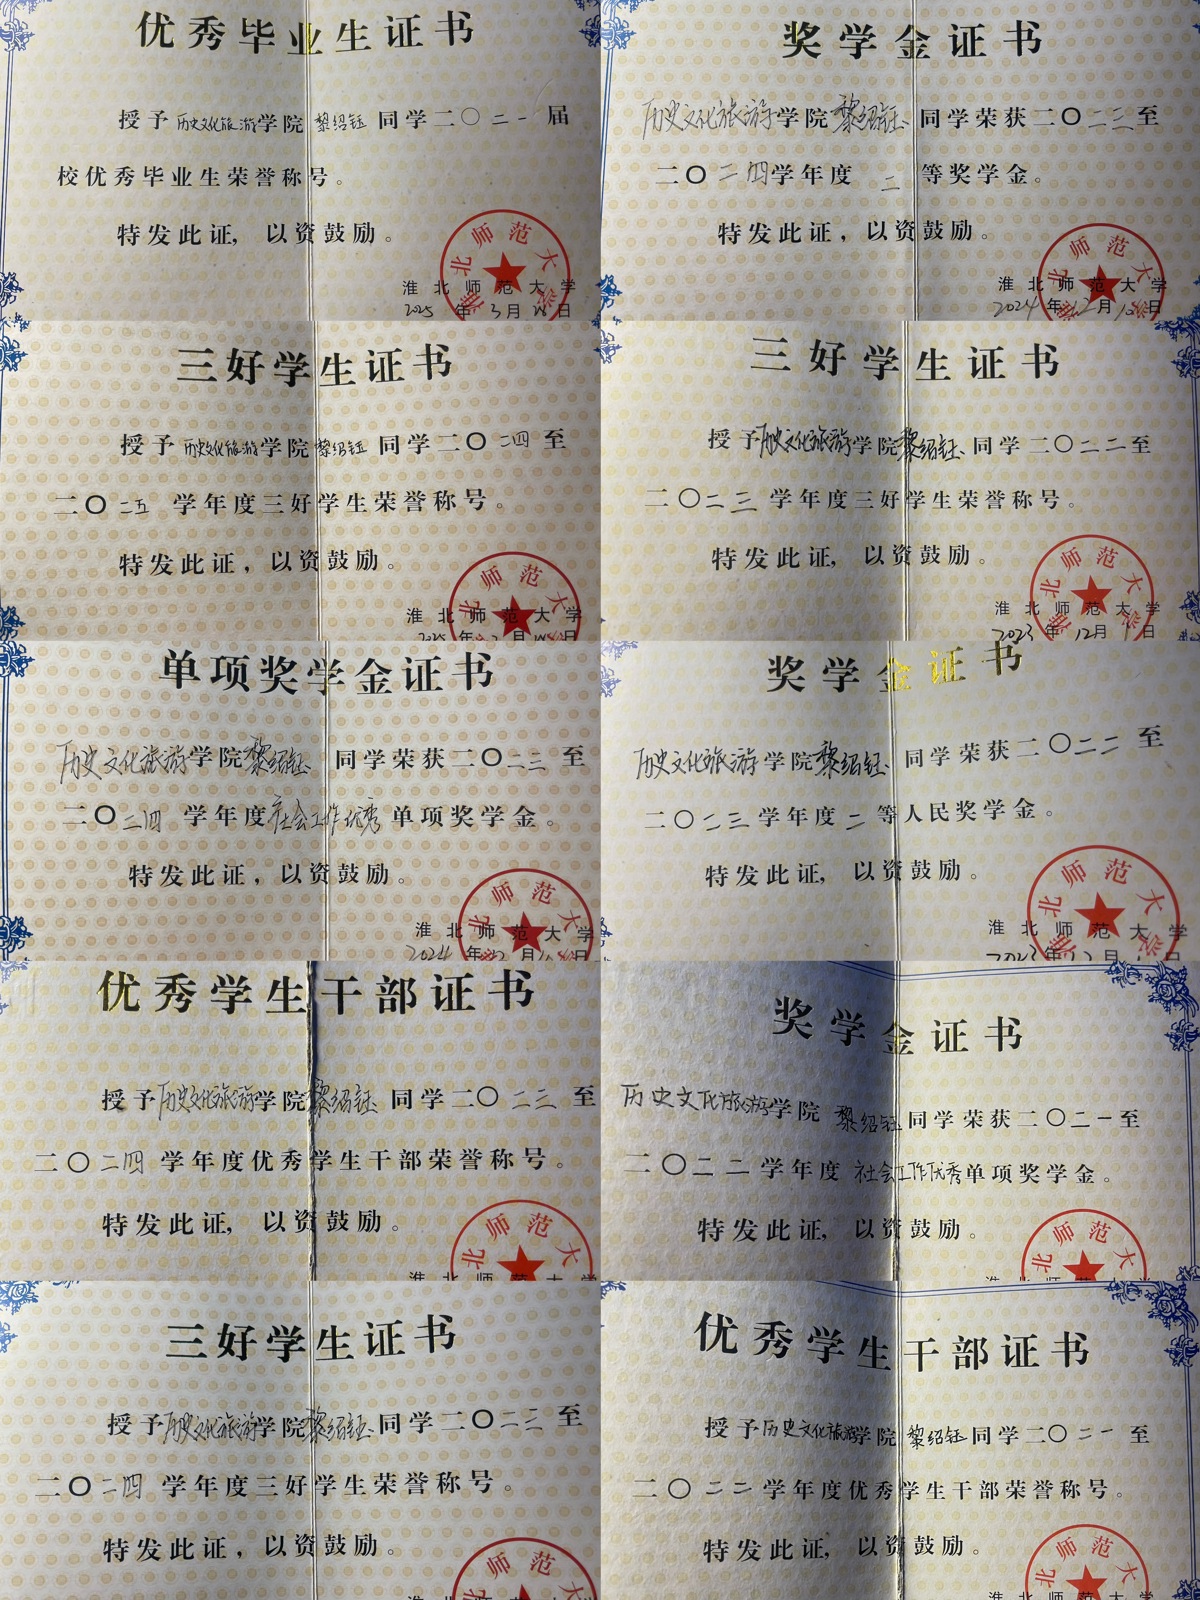 优秀毕业生证书
授予历史文化旅游学院黎绍钰同学二〇二一届
校优秀毕业生荣誉称号。
特发此证，以资鼓励。
北师范大学
淮北师范大学
2025年3月日
奖学金证书
历史文化旅游学院黎绍钰同学荣获二〇二三至
二〇二四学年度二等奖学金。
特发此证，以资鼓励。
北师范大学
淮北师范大学
2024年12月10日
三好学生证书
授予历史文化旅游学院黎绍钰同学二〇二四至
二〇二五学年度三好学生荣誉称号。
特发此证，以资鼓励。
北师范大
淮北师范大学
2025年月日
三好学生证书
授予历史文化旅游学院黎绍钰同学二〇二二至
二〇二三学年度三好学生荣誉称号。
特发此证，以资鼓励。
北师范大
淮北师范大学
2023年12月1日
单项奖学金证书
历史文化旅游学院黎绍钰同学荣获二〇二三至
二〇二四学年度社会工作优秀单项奖学金。
特发此证，以资鼓励。
北师范大
淮北师范大学
2024年12月日
奖学金证书
历史文化旅游学院黎绍钰同学荣获二〇二二至
二〇二三学年度二等人民奖学金。
特发此证，以资鼓励。
北师范大学
淮北师范大学
2023年12月
优秀学生干部证书
授予历史文化旅游学院黎绍钰同学二〇二三至
二〇二四学年度优秀学生干部荣誉称号。
特发此证，以资鼓励。
北师范大
奖学金证书
历史文化旅游学院黎绍钰同学荣获二〇二一至
二〇二二学年度社会工作优秀单项奖学金。
特发此证，以资鼓励。
北师范大
三好学生证书
授予历史文化旅游学院黎绍钰同学二〇二三至
二〇二四学年度三好学生荣誉称号。
特发此证，以资鼓励。
北师范大
优秀学生干部证书
授予历史文化旅游学院黎绍钰同学二〇二一至
二〇二二学年度优秀学生干部荣誉称号。
特发此证，以资鼓励。
北师范大